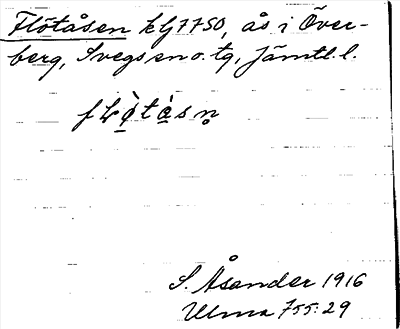 Flötåsen kG7750, ås i Över-
berg, Svegs sn o. tg, Jämtl. l.
S. Åsander 1916
Ulma 755:29